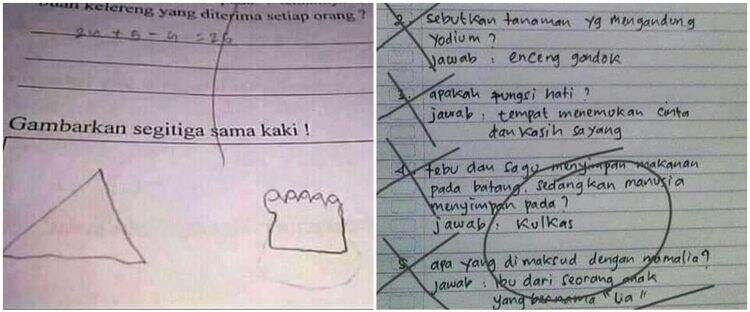 kelereng yang diterima setiap orang ?
24 + 5 - 4 = 26
Gambarkan segitiga sama kaki !
2. sebutkan tanaman yg mengandung
yodium ?
jawab : enceng gondok
3. apakah fungsi hati ?
jawab : tempat menemukan cinta
dan kasih sayang
4. tebu dan sagu menyimpan makanan
pada batang. sedangkan manusia
menyimpan pada ?
jawab : kulkas
5. apa yang dimaksud dengan mamalia ?
jawab : Ibu dari seorang anak
yang bernama "Lia"